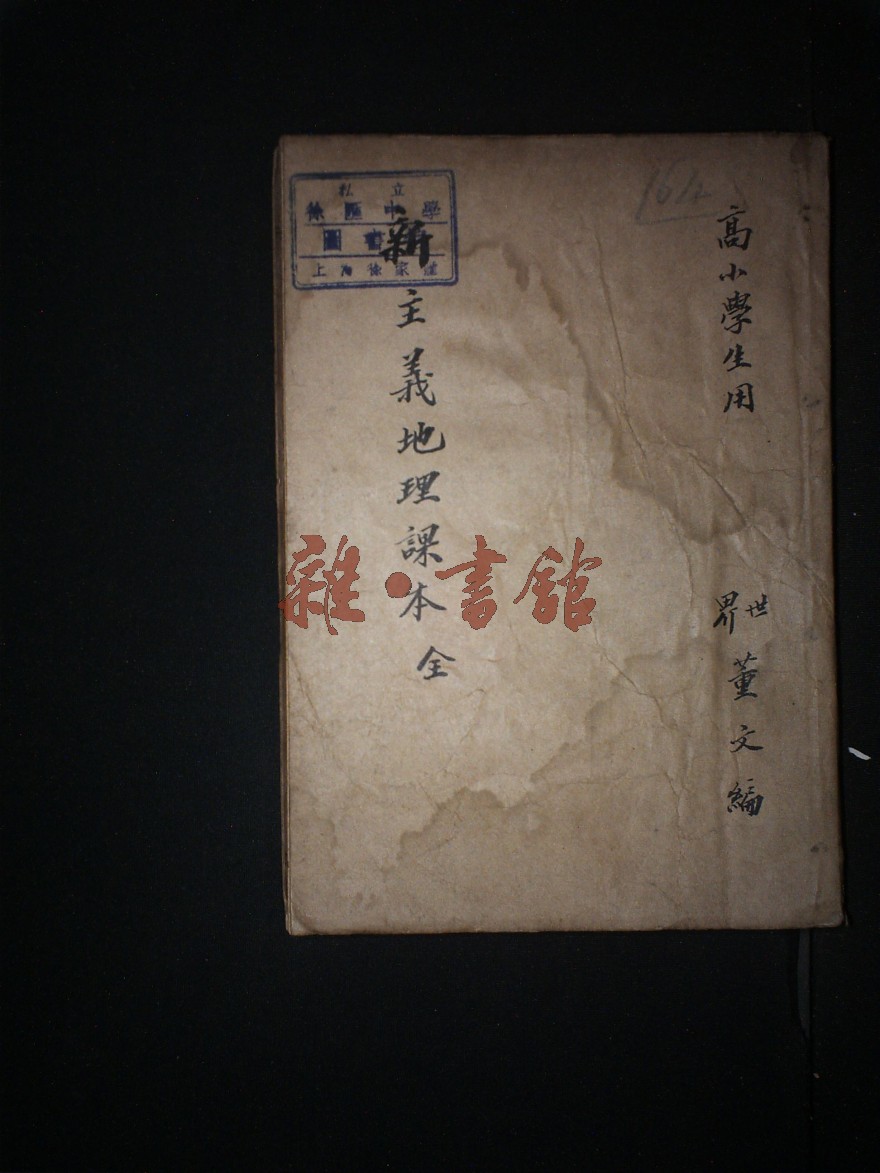 高小學生用
世界 董文編
新主義地理課本 全
私立
徐匯中學
圖書
上海徐家匯
雜·書館